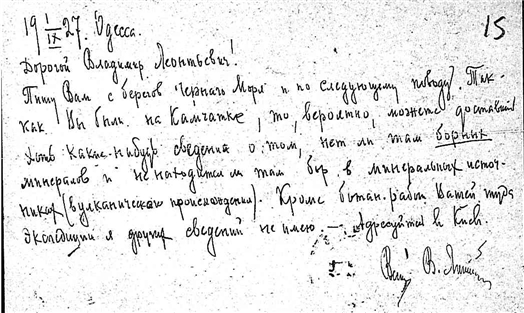 19 1/IX 27. Одесса. 15
Дорогой Владимир Леонтьевич!
Пишу Вам с берегов Черного Моря и по следующему поводу. Так-
как Вы были на Камчатке, то, вероятно, можете доставить
хоть какие-нибудь сведения о том, нет ли там борных
минералов и не находится ли там бор в минеральных источ-
никах (вулканических происхождения). Кроме ботан. работ Вашей
экспедиции я других сведений не имею. — Адресуйте в Киев.
Ваш В.